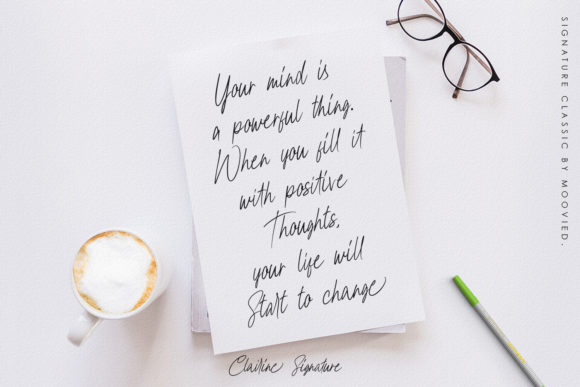 Your mind is
a powerful thing.
When you fill it
with positive
Thoughts,
your life will
Start to change
Signature
SIGNATURE CLASSIC BY MOOVIED.